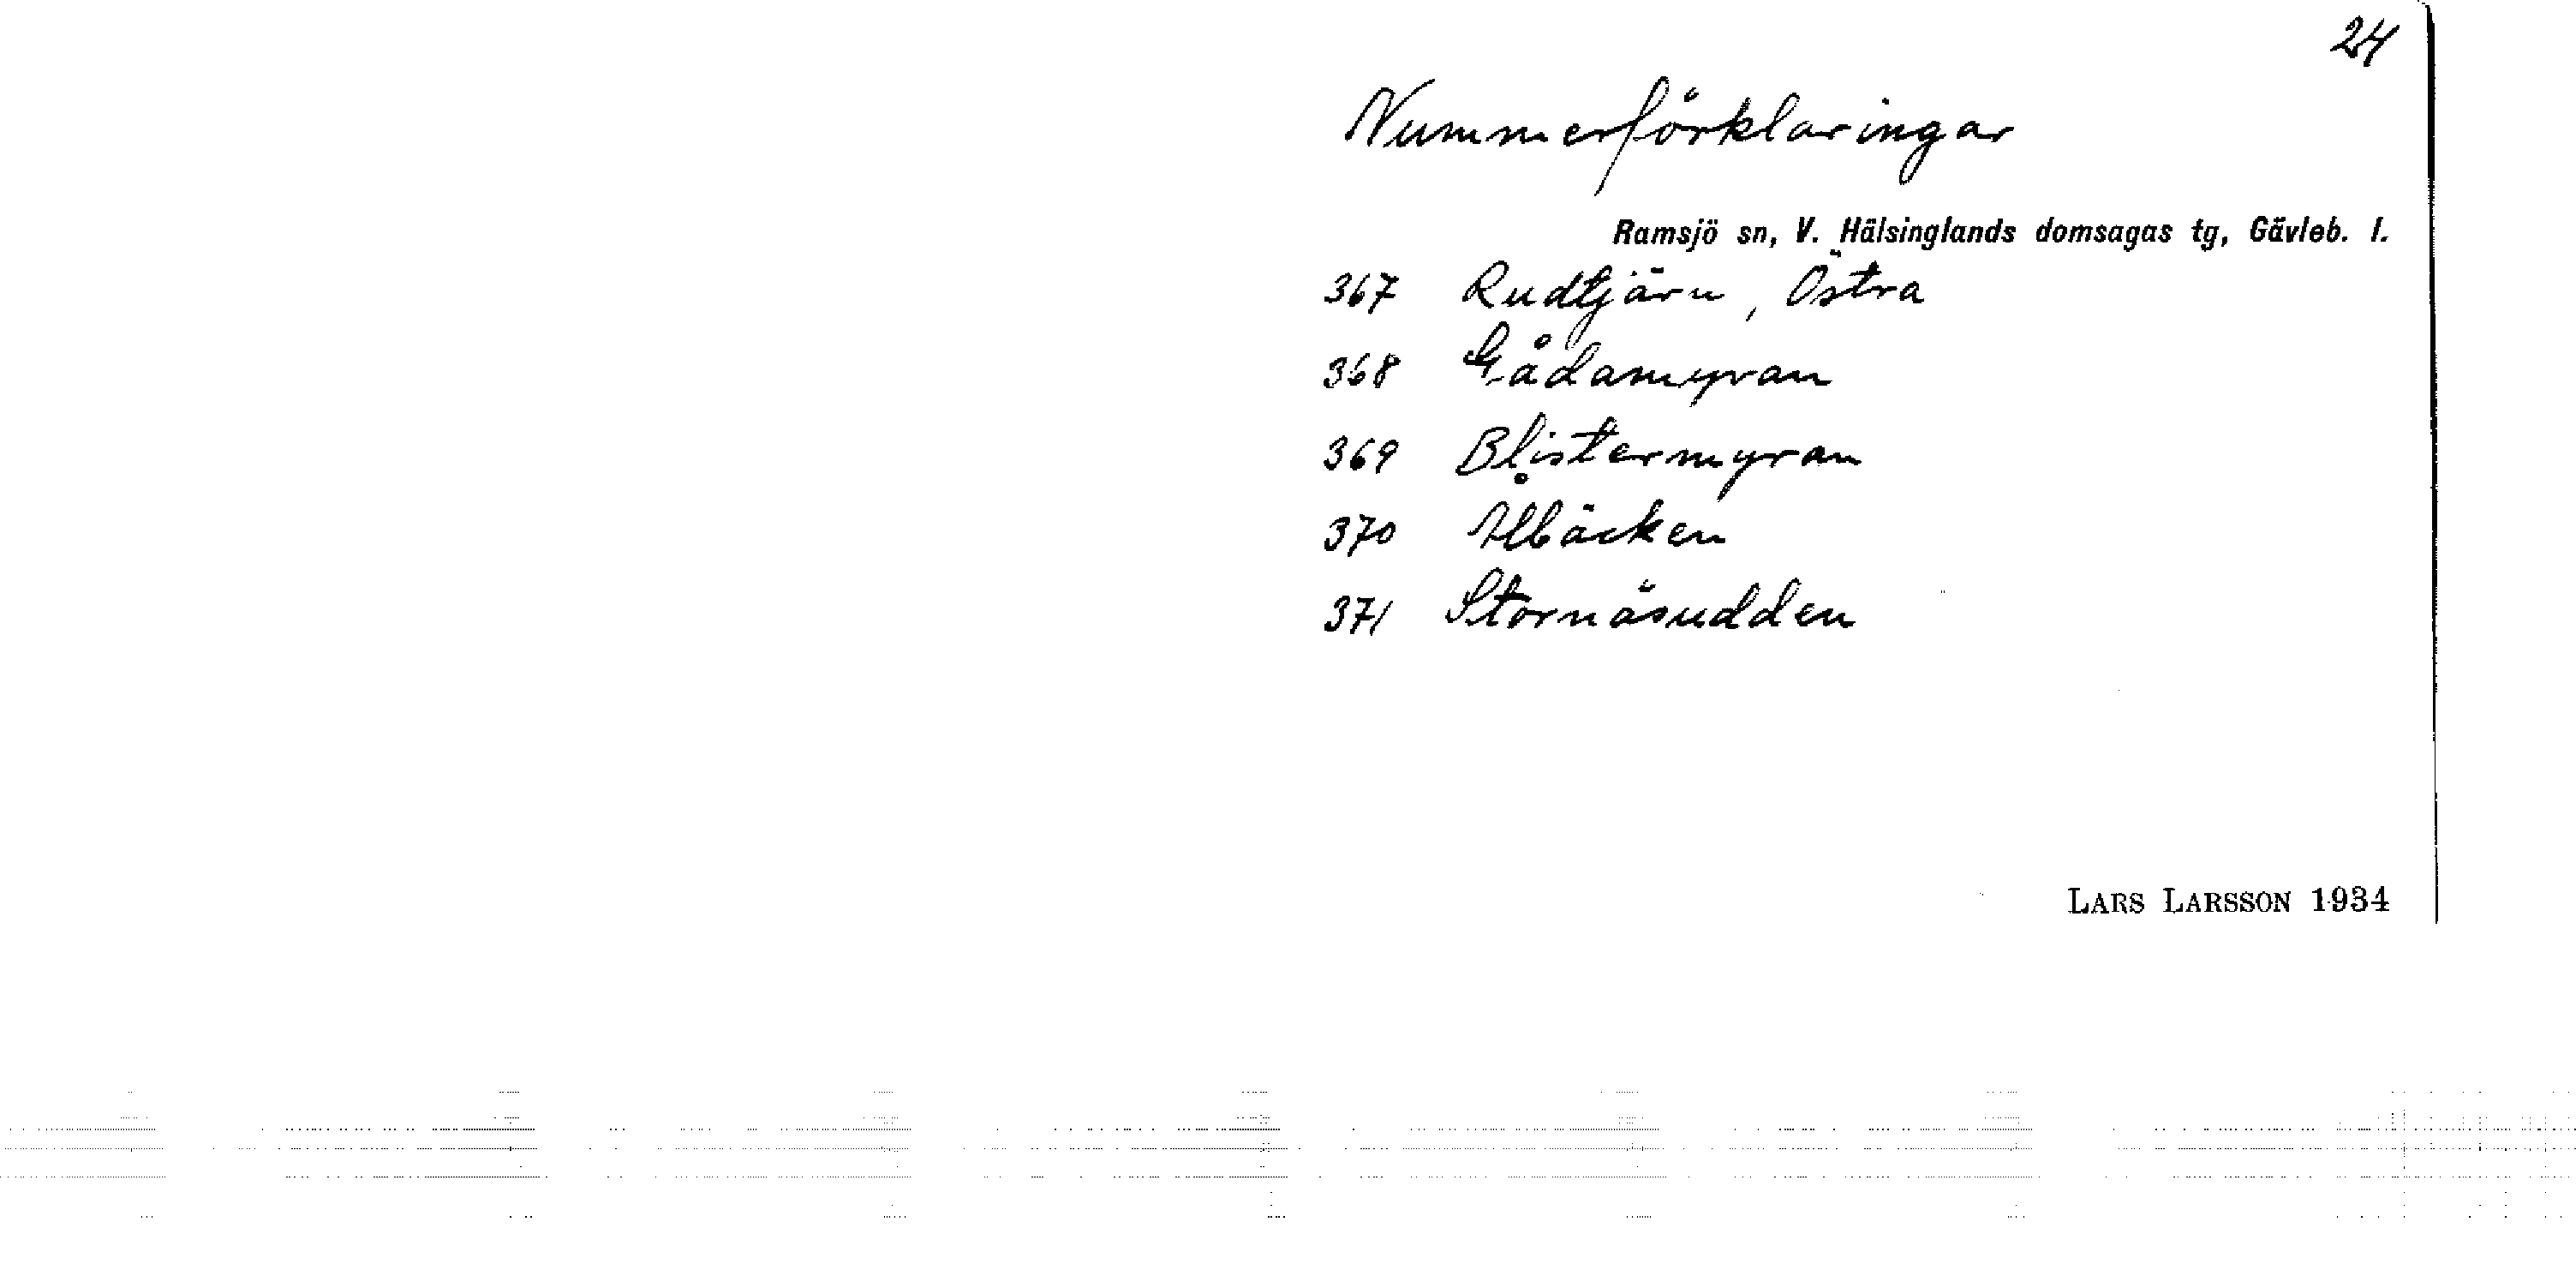 24
Nummerförklaringar
Ramsjö sn, V. Hälsinglands domsagas tg, Gävleb. l.
367 Rudtjärn, Östra
368 Gådamyran
369 Blistermyran
370 Ålbäcken
371 Stornäsudden
LARS LARSSON 1934